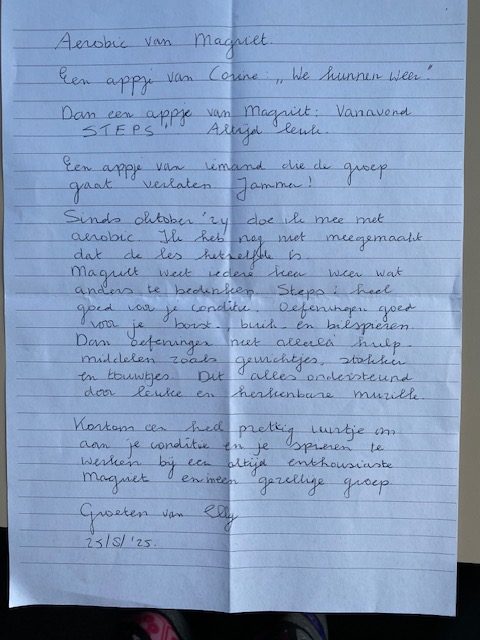 Aerobic van Magriet.
Een appje van Corine: „We kunnen weer."
Dan een appje van Magriet: Vanavond
STEPS! Altijd leuk.
Een appje van iemand die de groep
gaat verlaten. Jammer!
Sinds oktober '24 doe ik mee met
aerobic. Ik heb nog niet meegemaakt
dat de les hetzelfde is.
Magriet weet iedere keer weer wat
anders te bedenken. Steps: heel
goed voor je conditie. Oefeningen goed
voor je borst-, buik- en bilspieren.
Dan oefeningen met allerlei hulp-
middelen zoals gewichtjes, stokken
en touwtjes. Dit alles ondersteund
door leuke en herkenbare muziek.
Kortom een heel prettig uurtje om
aan je conditie en je spieren te
werken bij een altijd enthousiaste
Magriet en een gezellige groep
Groeten van Elly
25/8/'25.